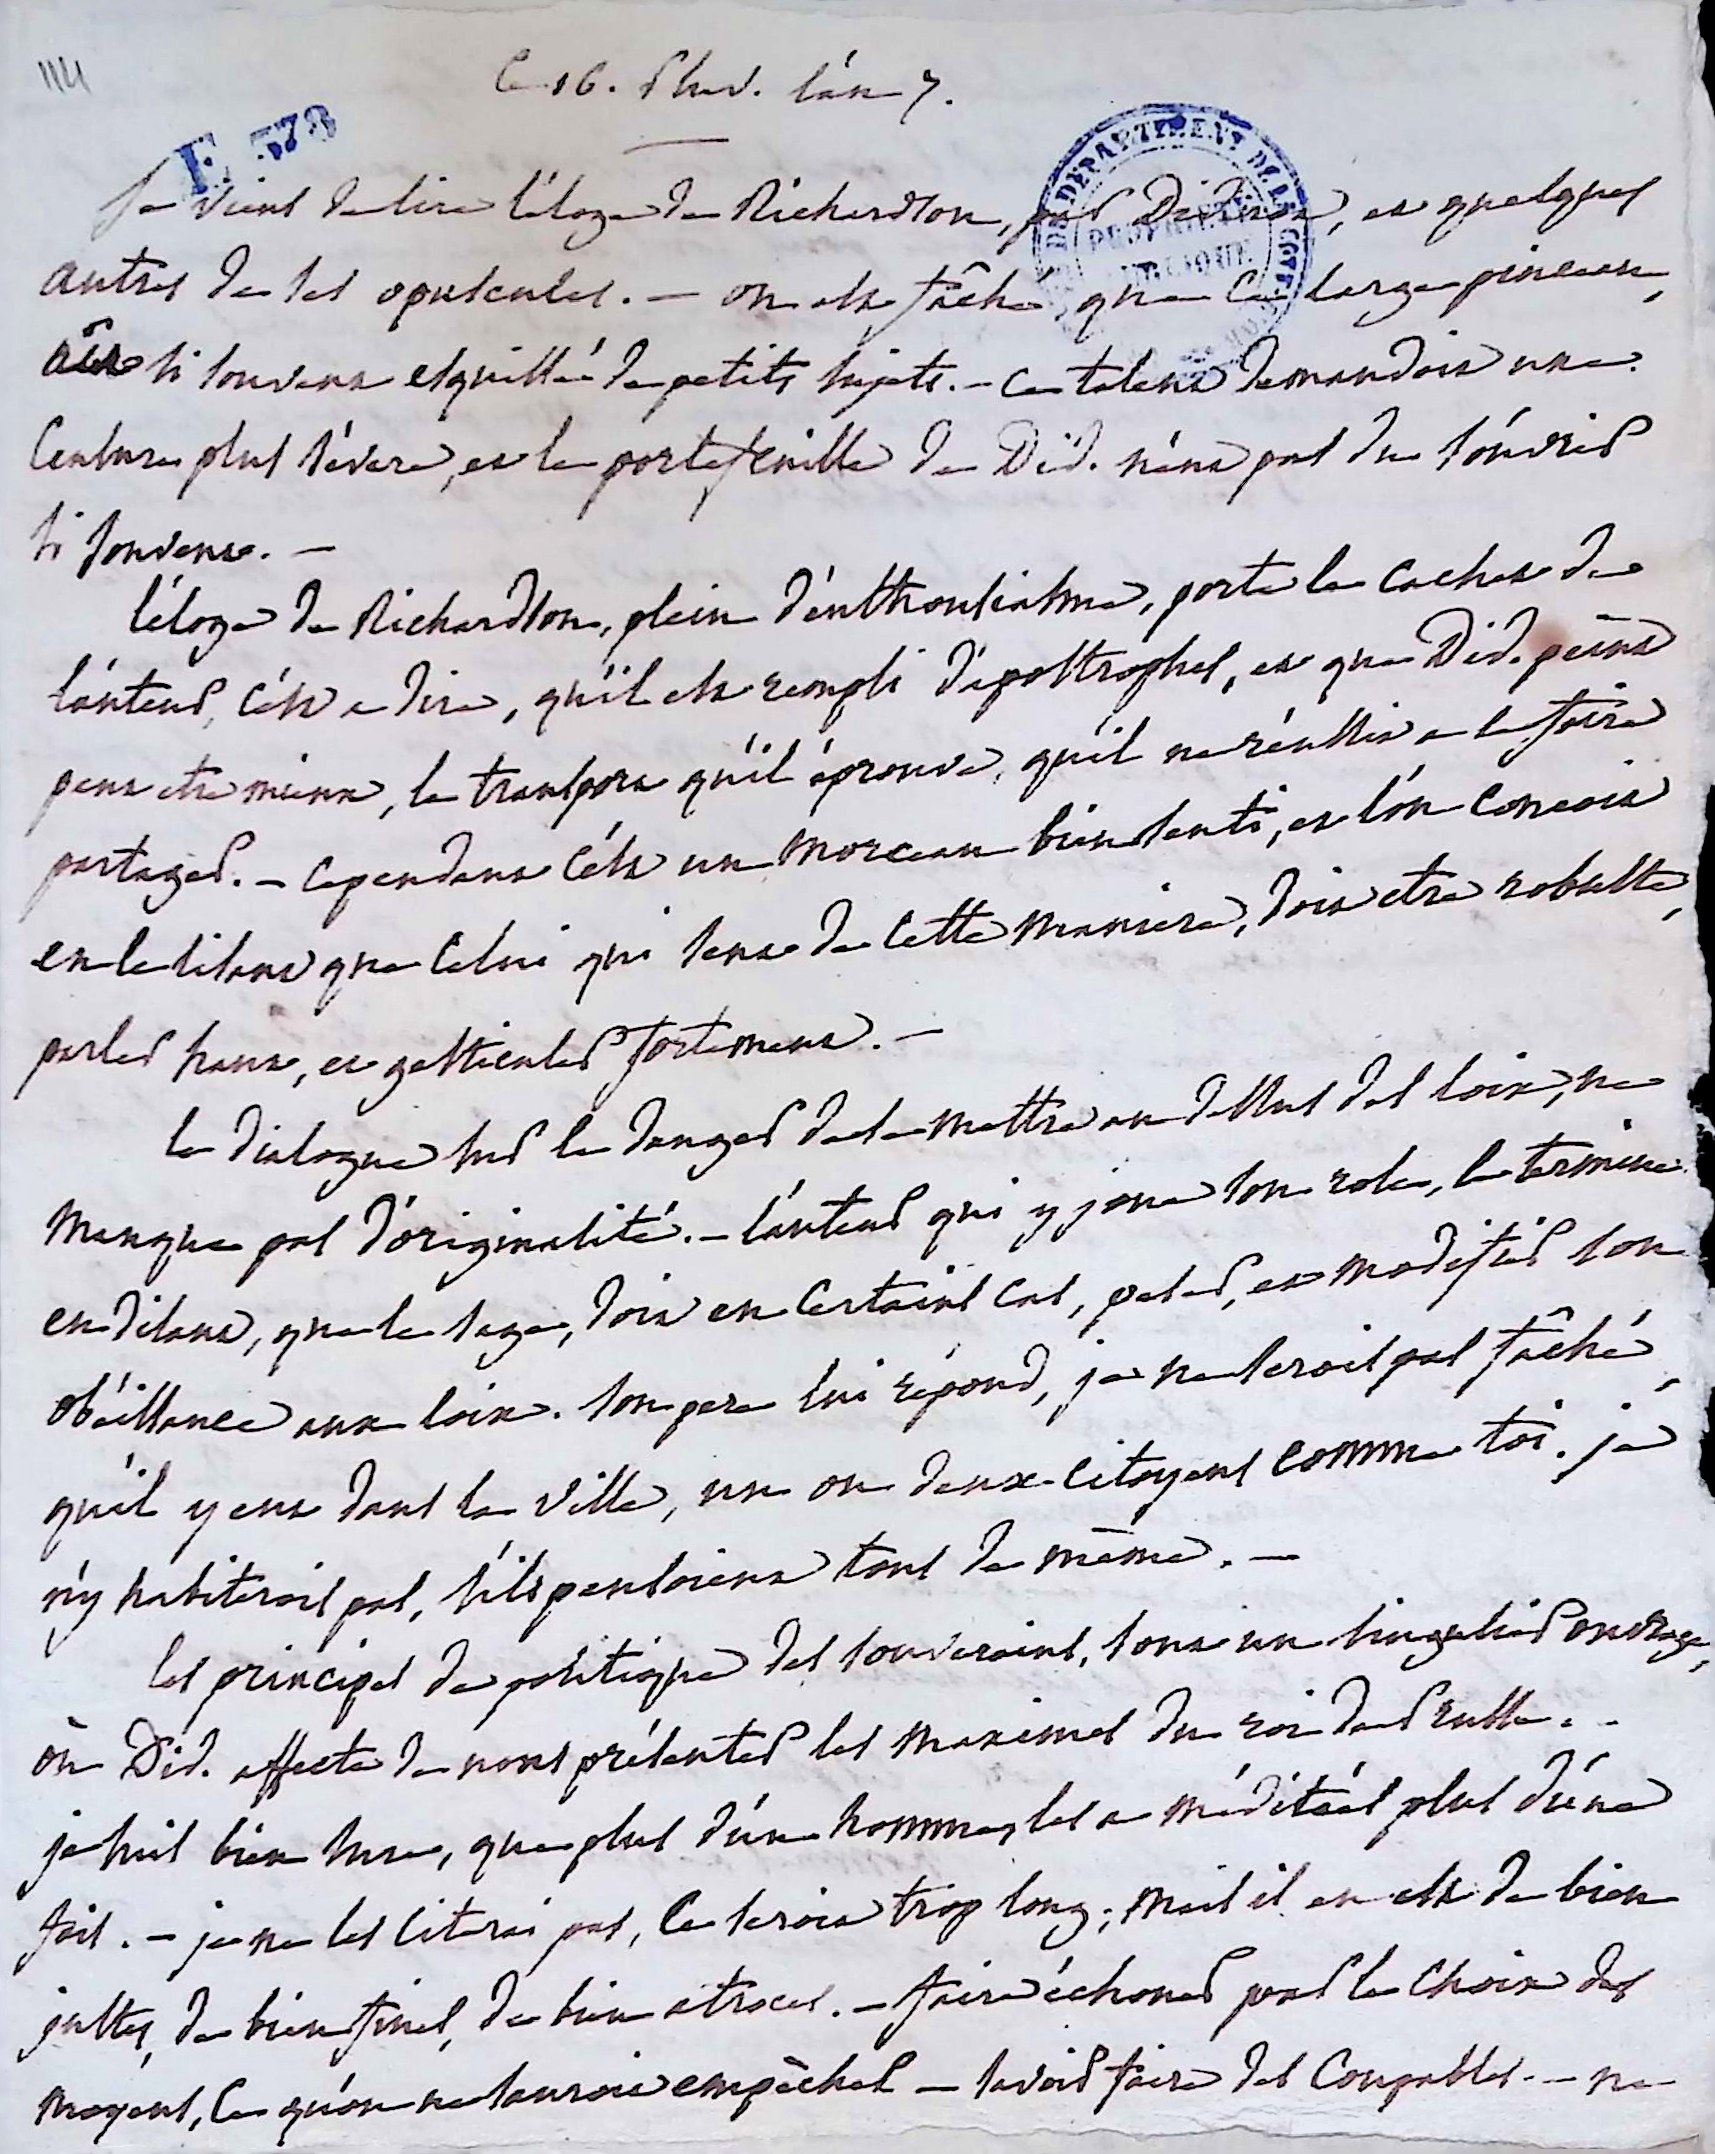 114
Ce 16. Pluv. l'an 7.
E 378
DU DÉPARTEMENT DE LA CÔTE
PROPRIÉTÉ
PUBLIQUE
Je viens de lire l'éloge de Richardson, par Diderot, et quelques
autres de ses opuscules. — on est fâché que ce large pinceau,
ait si souvent esquissé de petits sujets. — ce talent demandoit une
censure plus sévère, et le portefeuille de Did. n'eut pas du s'ouvrir
si souvent. —
l'éloge de Richardson, plein d'enthousiasme, porte le cachet de
l'auteur, c'est a dire, qu'il est rempli d'apostrophes, et que Did. peint
peut etre mieux, le transport qu'il éprouve, qu'il ne réussit a le faire
partager. — cependant c'est un morceau bien senti, et l'on concoit
en le lisant que celui qui sent de cette maniere, doit etre robuste,
parler haut, et gesticuler fortement. —
le dialogue sur le danger de se mettre au dessus des loix, ne
manque pas d'originalité. — l'auteur qui y joue son role, le termine
en disant, que le sage, doit en certains cas, peser, et modifier son
obéissance aux loix. son pere lui répond, je ne serois pas fâché,
qu'il y eut dans la ville, un ou deux citoyens comme toi. je
n'y habiterois pas, s'ils pensoient tous de même. —
les principes de politique des souverains, sont un singulier ouvrage,
où Did. affecte de nous présenter les maximes du roi de Prusse. .
je suis bien sur, que plus d'un homme, les a méditées plus d'une
fois. — je ne les citerai pas, ce seroit trop long ; mais il en est de bien
justes, de bien fines, de bien atroces. — faire échouer par le choix des
moyens, ce qu'on ne sauroit empêcher — savoir faire des coupables. — ne